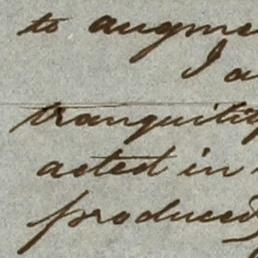 to augme
I a
tranquility
acted in
produced